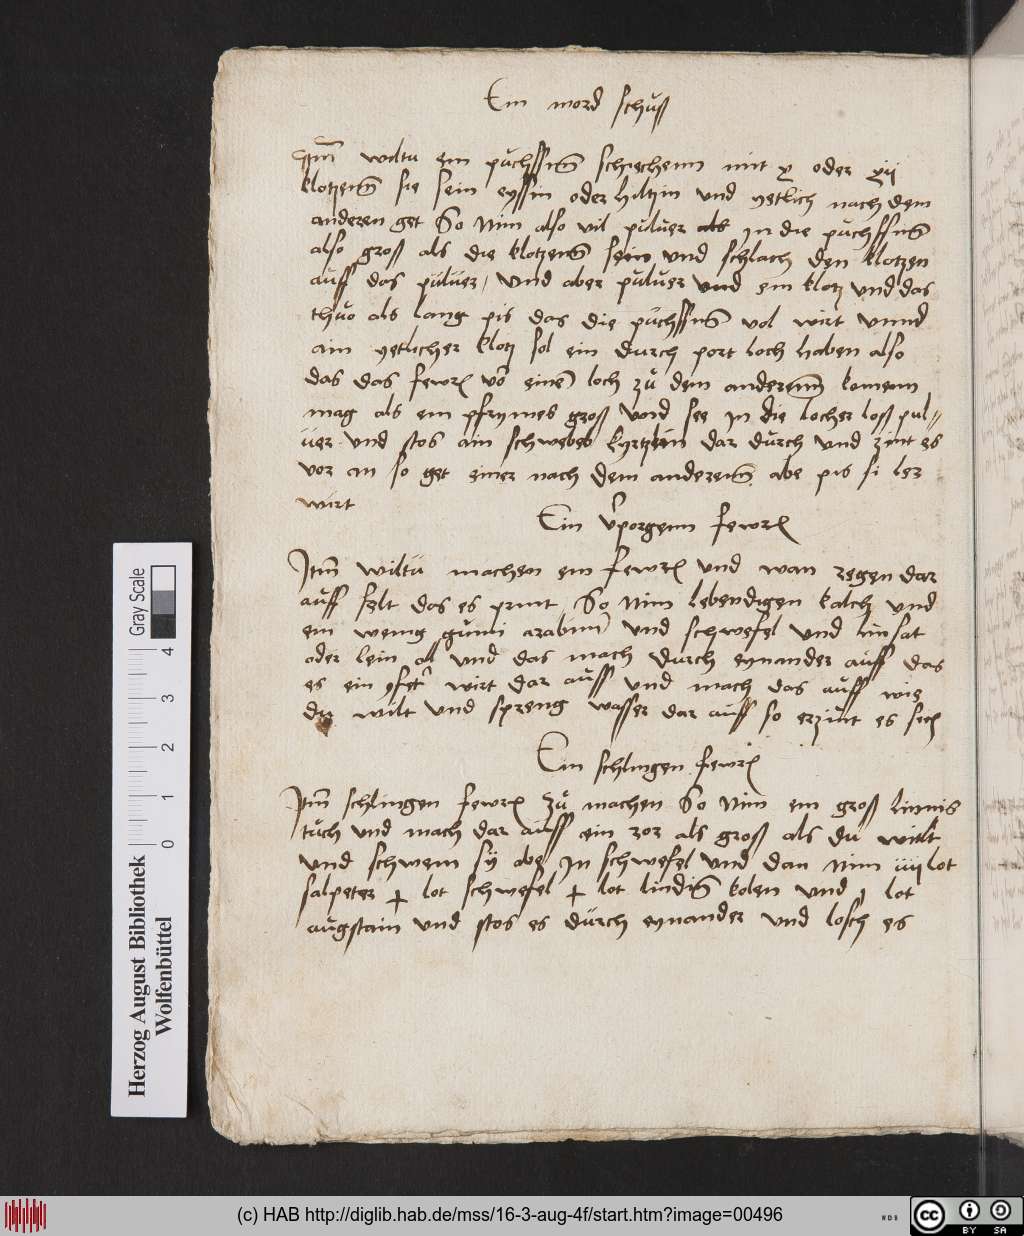 Ein mord schuß
Itm wiltu ein püchssenn schiechenn mit x oder xij
klotzenn sie sein eyssin oder hiltzin und yetlich nach dem
anderen get So Nim also vil puluer als In die püchssenn
also groß als die klotzenn sein und schlach den klotzen
auff das püluer, und aber puluer und ein klotz und das
thuo als lang pis das die püchssenn vol wirt unnd
ain yetlicher klotz sol ein durch port loch haben also
das das fewr vo einem loch zü dem anderenn komenn
mag als ein pfrymes groß und see In die locher loß pul=
uer und stos ain schwebes kyrtzlein dar dürch und zint es
vor an so get einer nach dem anderenn abe pis si ler
wirt
Ein v'porgenn fewr
Itm wiltü machen ein fewr und wan regen dar
auff felt das es print, So Nim lebendigen kalch und
ein wenig gumi arabinn und schwefel und linsat
oder lein ol und das mach dürch eynander auff das
es ein yset' wirt dar auff und mach das auff wie
du wilt und spreng wasser dar auff so erzint es sech
Ein schlingen fewr
Itm schlingen fewr zü machen So Nim ein groß linnis
tüch und mach dar auss ein ror als groß als du wilt
und schwem sy abe In schwefel und dan Nim iiij lot
salpeter ɉ lot schwefel ɉ lot lindin kolen und j lot
augstain und stos es dürch eynander und losch es
Gray Scale
0 1 2 3 4
Herzog August Bibliothek
Wolfenbüttel
(c) HAB http://diglib.hab.de/mss/16-3-aug-4f/start.htm?image=00496
WDB
cc BY SA